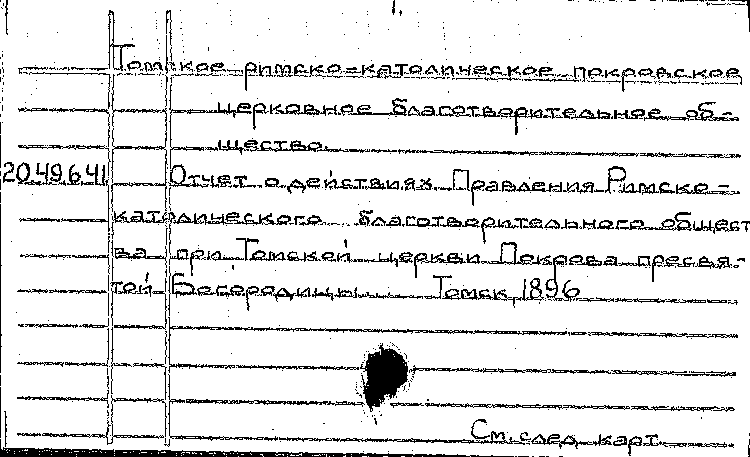 1.
Томское римско-католическое покровское
церковное благотворительное об-
щество.
20.49.6.41 Отчет о действиях Правления Римско-
католического благотворительного общест
ва при Томской церкви Покрова пресвя-
той Богородицы. Томск, 1896
См. след. карт.